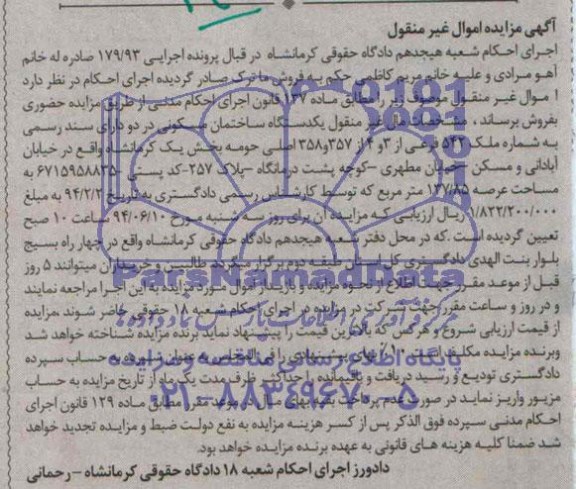 آگهی مزایده اموال غیر منقول
اجرای احکام شعبه هیجدهم دادگاه حقوقی کرمانشاه در قبال پرونده اجرایی ۱۷۹/۹۳ صادره له خانم
آهو مرادی و علیه خانم مریم کاظمی حکم به فروش ماترک صادر گردیده اجرای احکام در نظر دارد
اموال غیر منقول موصوف زیر را مطابق ماده ۱۳۷ قانون اجرای احکام مدنی از طریق مزایده حضوری
بفروش برساند، مشخصات مال غیر منقول یکدستگاه ساختمان مسکونی در دو دارای سند رسمی
به شماره ملک ۵۴۳ فرعی از ۳و ۴ از ۳۵۷و۳۵۸ اصلی حومه بخش یک کرمانشاه واقع در خیابان
آبادانی و مسکن خیابان مطهری -کوچه پشت درمانگاه -پلاک ۲۵۷-کد پستی ۶۷۱۵۹۵۸۸۳۵- به
مساحت عرصه ۱۳۷/۸۵ متر مربع که توسط کارشناس رسمی دادگستری به تاریخ ۹۴/۲/۲ به مبلغ
۱/۸۲۲/۲۰۰/۰۰۰ ریال ارزیابی که مزایده آن برای روز سه شنبه مورخ ۹۴/۰۶/۱۰ ساعت ۱۰ صبح
تعیین گردیده است .که در محل دفتر شعبه هیجدهم دادگاه حقوقی کرمانشاه واقع در چهار راه بسیج
بلوار بنت الهدی دادگستری کل استان طبقه دوم برگزار میگردد طالبین و خریداران میتوانند ۵ روز
قبل از موعد مقرر جهت اطلاع از نحوه مزایده و بازدید از اموال مورد مزایده به این اجرا مراجعه نمایند
و در روز و ساعت مقرر جهت شرکت در مزایده در اجرای احکام شعبه ۱۸ حقوقی حاضر شوند مزایده
از قیمت ارزیابی شروع و هرکس که بالاترین قیمت را پیشنهاد نماید برنده مزایده شناخته خواهد شد
وبرنده مزایده مکلف است ۱۰٪ بهای پیشنهادی را فی المجلس به عنوان سپرده به حساب سپرده
دادگستری تودیع و رسید دریافت و باقیمانده را حداکثر ظرف مدت یک ماه از تاریخ مزایده به حساب
مزبور واریز نماید در صورت عدم پرداخت بقیه بهای مال در موعد مقرر مطابق ماده ۱۲۹ قانون اجرای
احکام مدنی سپرده فوق الذکر پس از کسر هزینه مزایده به نفع دولت ضبط و مزایده تجدید خواهد
شد ضمنا کلیه هزینه های قانونی به عهده برنده مزایده خواهد بود.
دادورز اجرای احکام شعبه ۱۸ دادگاه حقوقی کرمانشاه -رحمانی
ParsNamadData
پایگاه اطلاع رسانی مناقصه و مزایده
۰۲۱-۸۸۳۴۹۶۷۰-۵